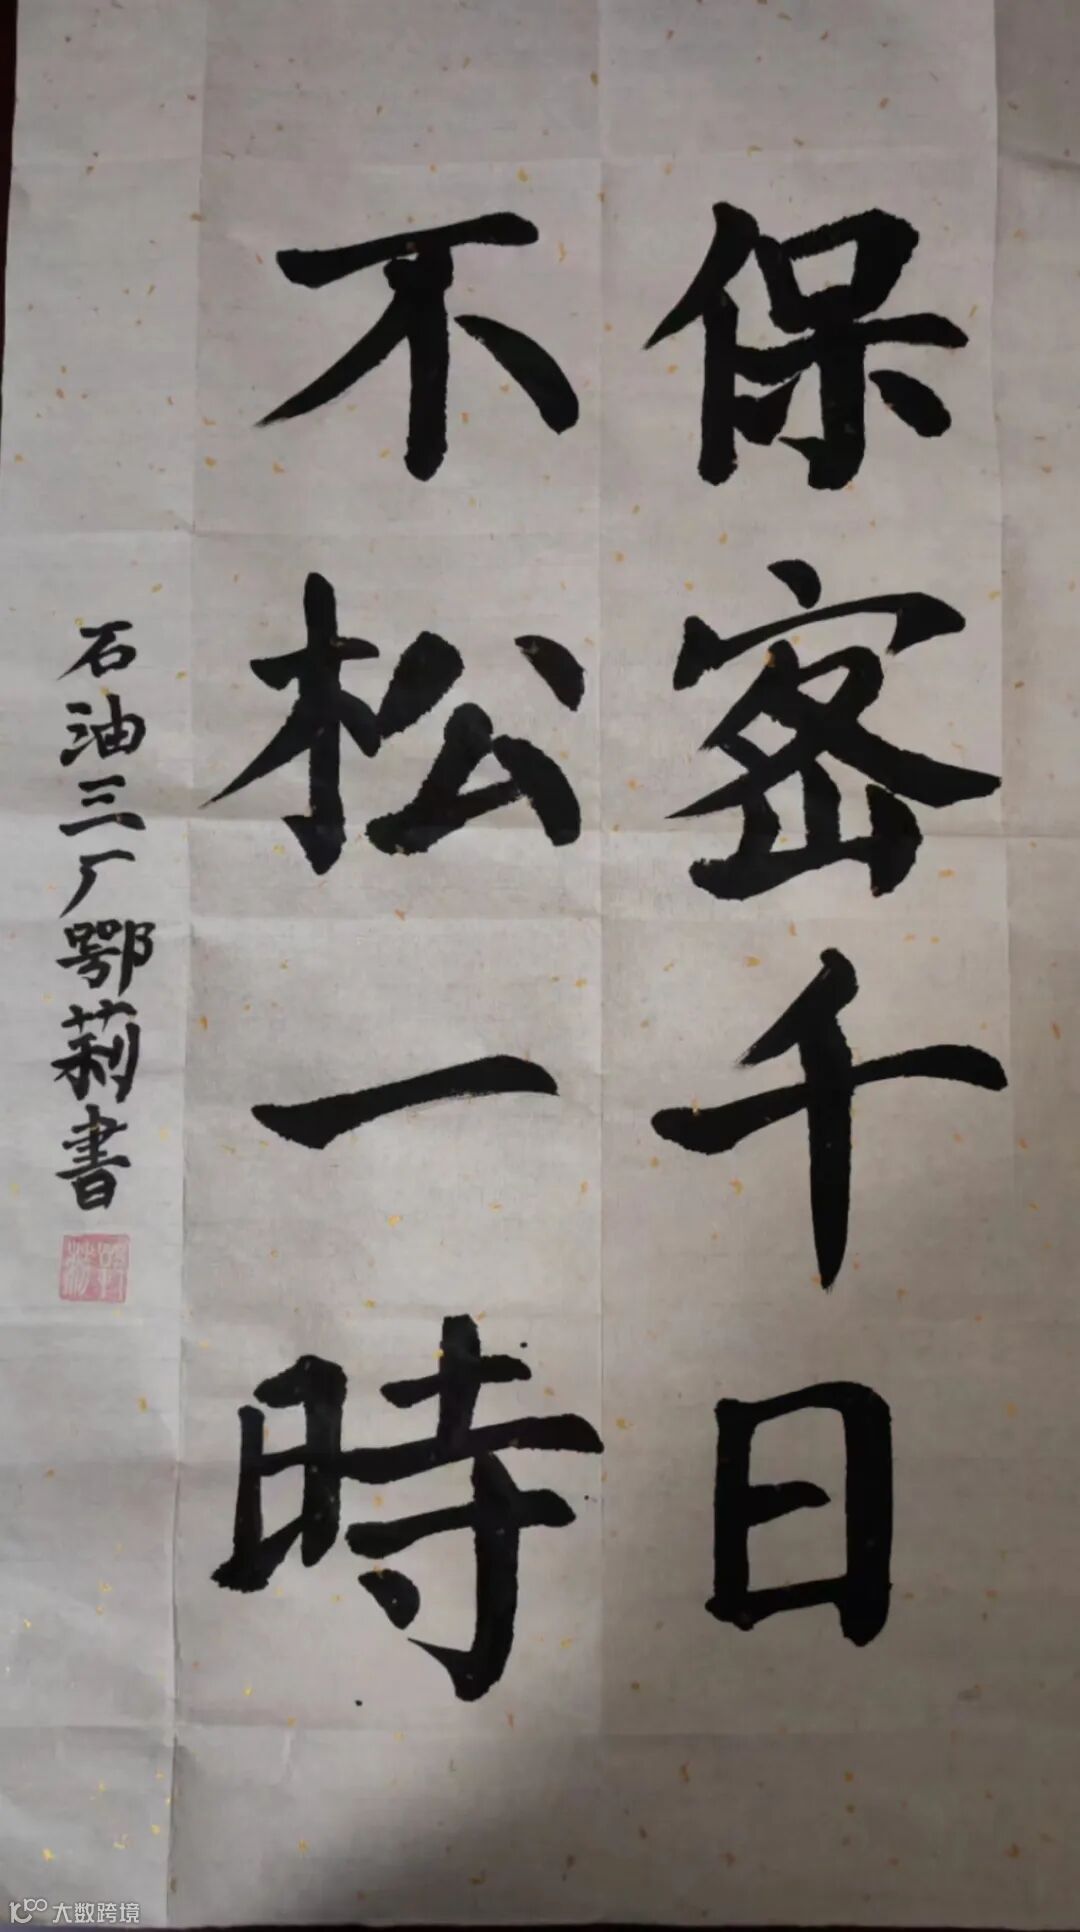 保密千日
不松一時
石油三厂鄂莉書
大数跨境